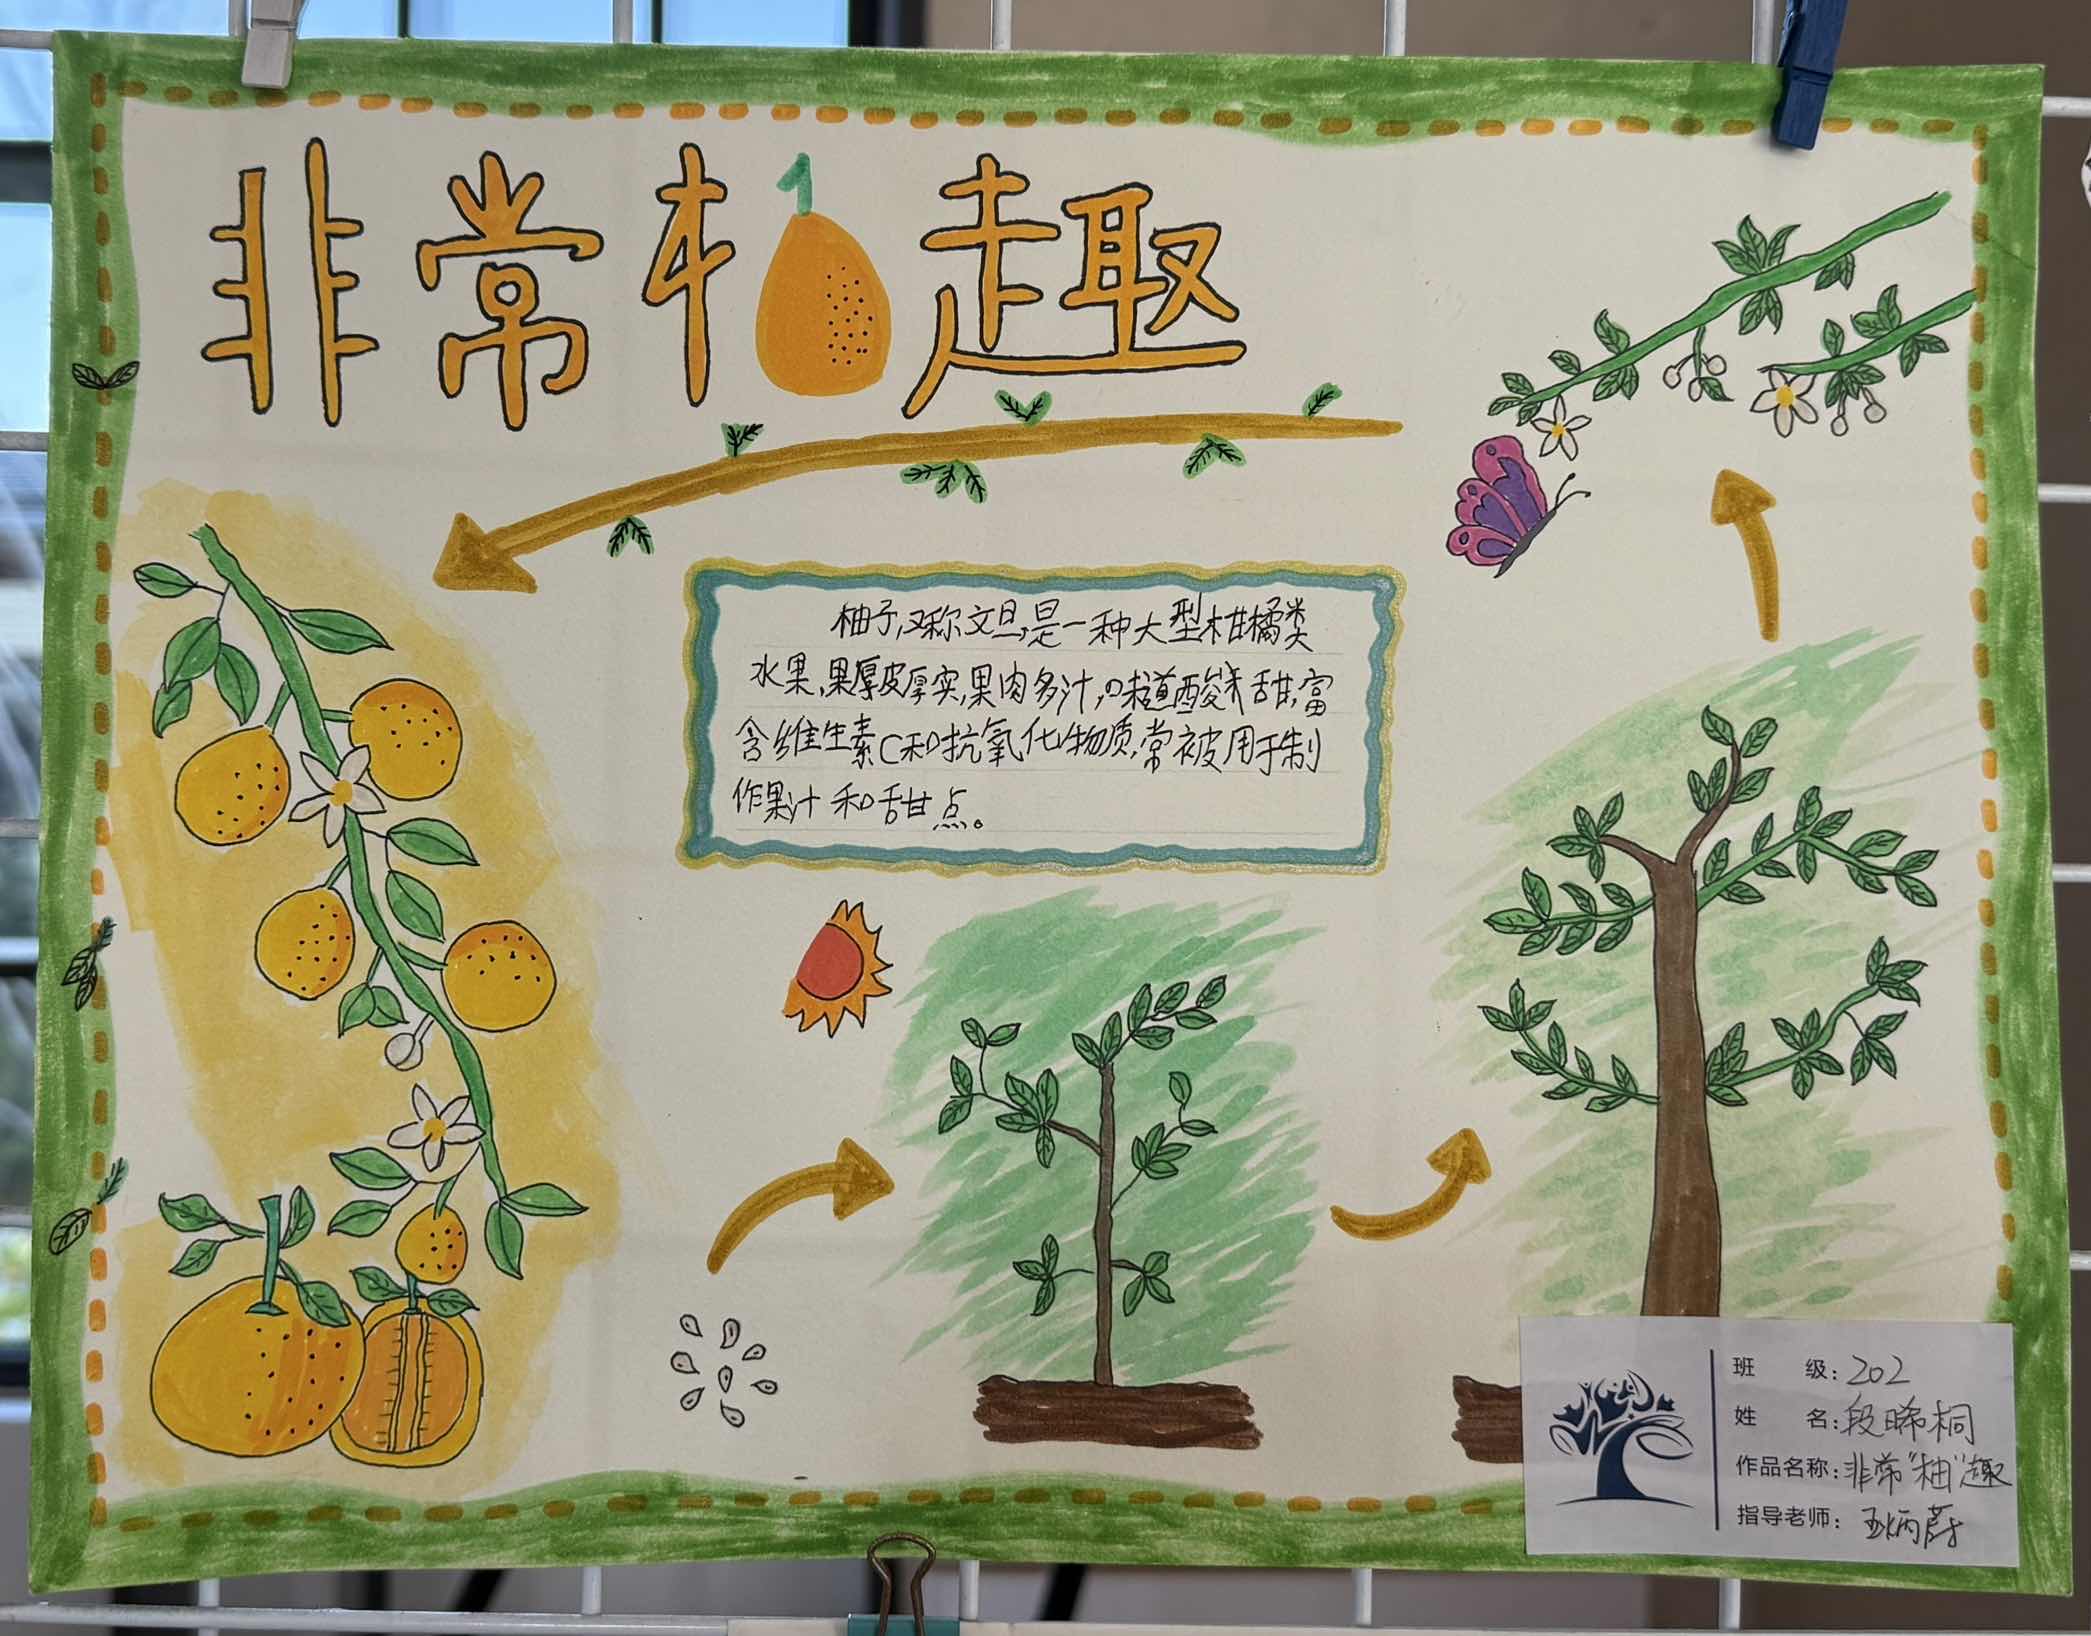 非常柚趣
柚子,又称文旦,是一种大型柑橘类
水果,果厚皮厚实,果肉多汁,味道酸甜,富
含维生素C和抗氧化物质,常被用于制
作果汁和甜点。
班 级:202
姓 名:段晞桐
作品名称:非常"柚"趣
指导老师: